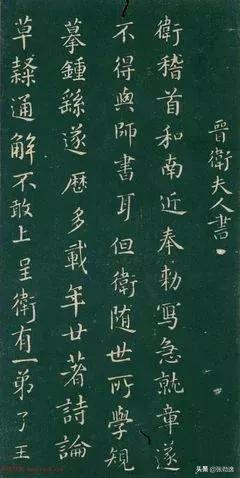 晉衛夫人書
衛稽首和南近奉勅寫急就章遂
不得與師書耳但衛随世所學規
摹鍾繇遂歷多載年廿著詩論
草隸通解不敢上呈衛有一弟子王
头条 @张劲逸